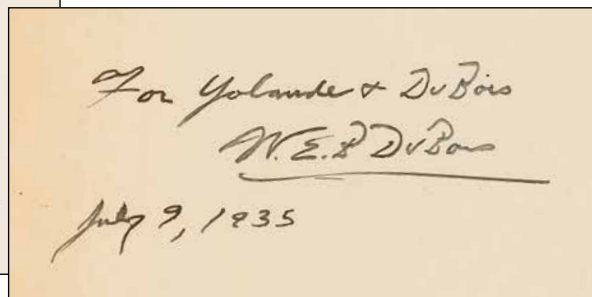 For Yolande & DuBois
W.E.B DuBois
July 9, 1935